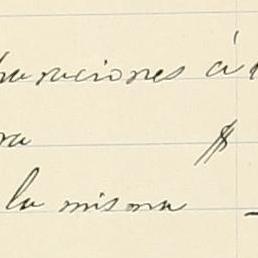 paraciones á
ra $
la misma